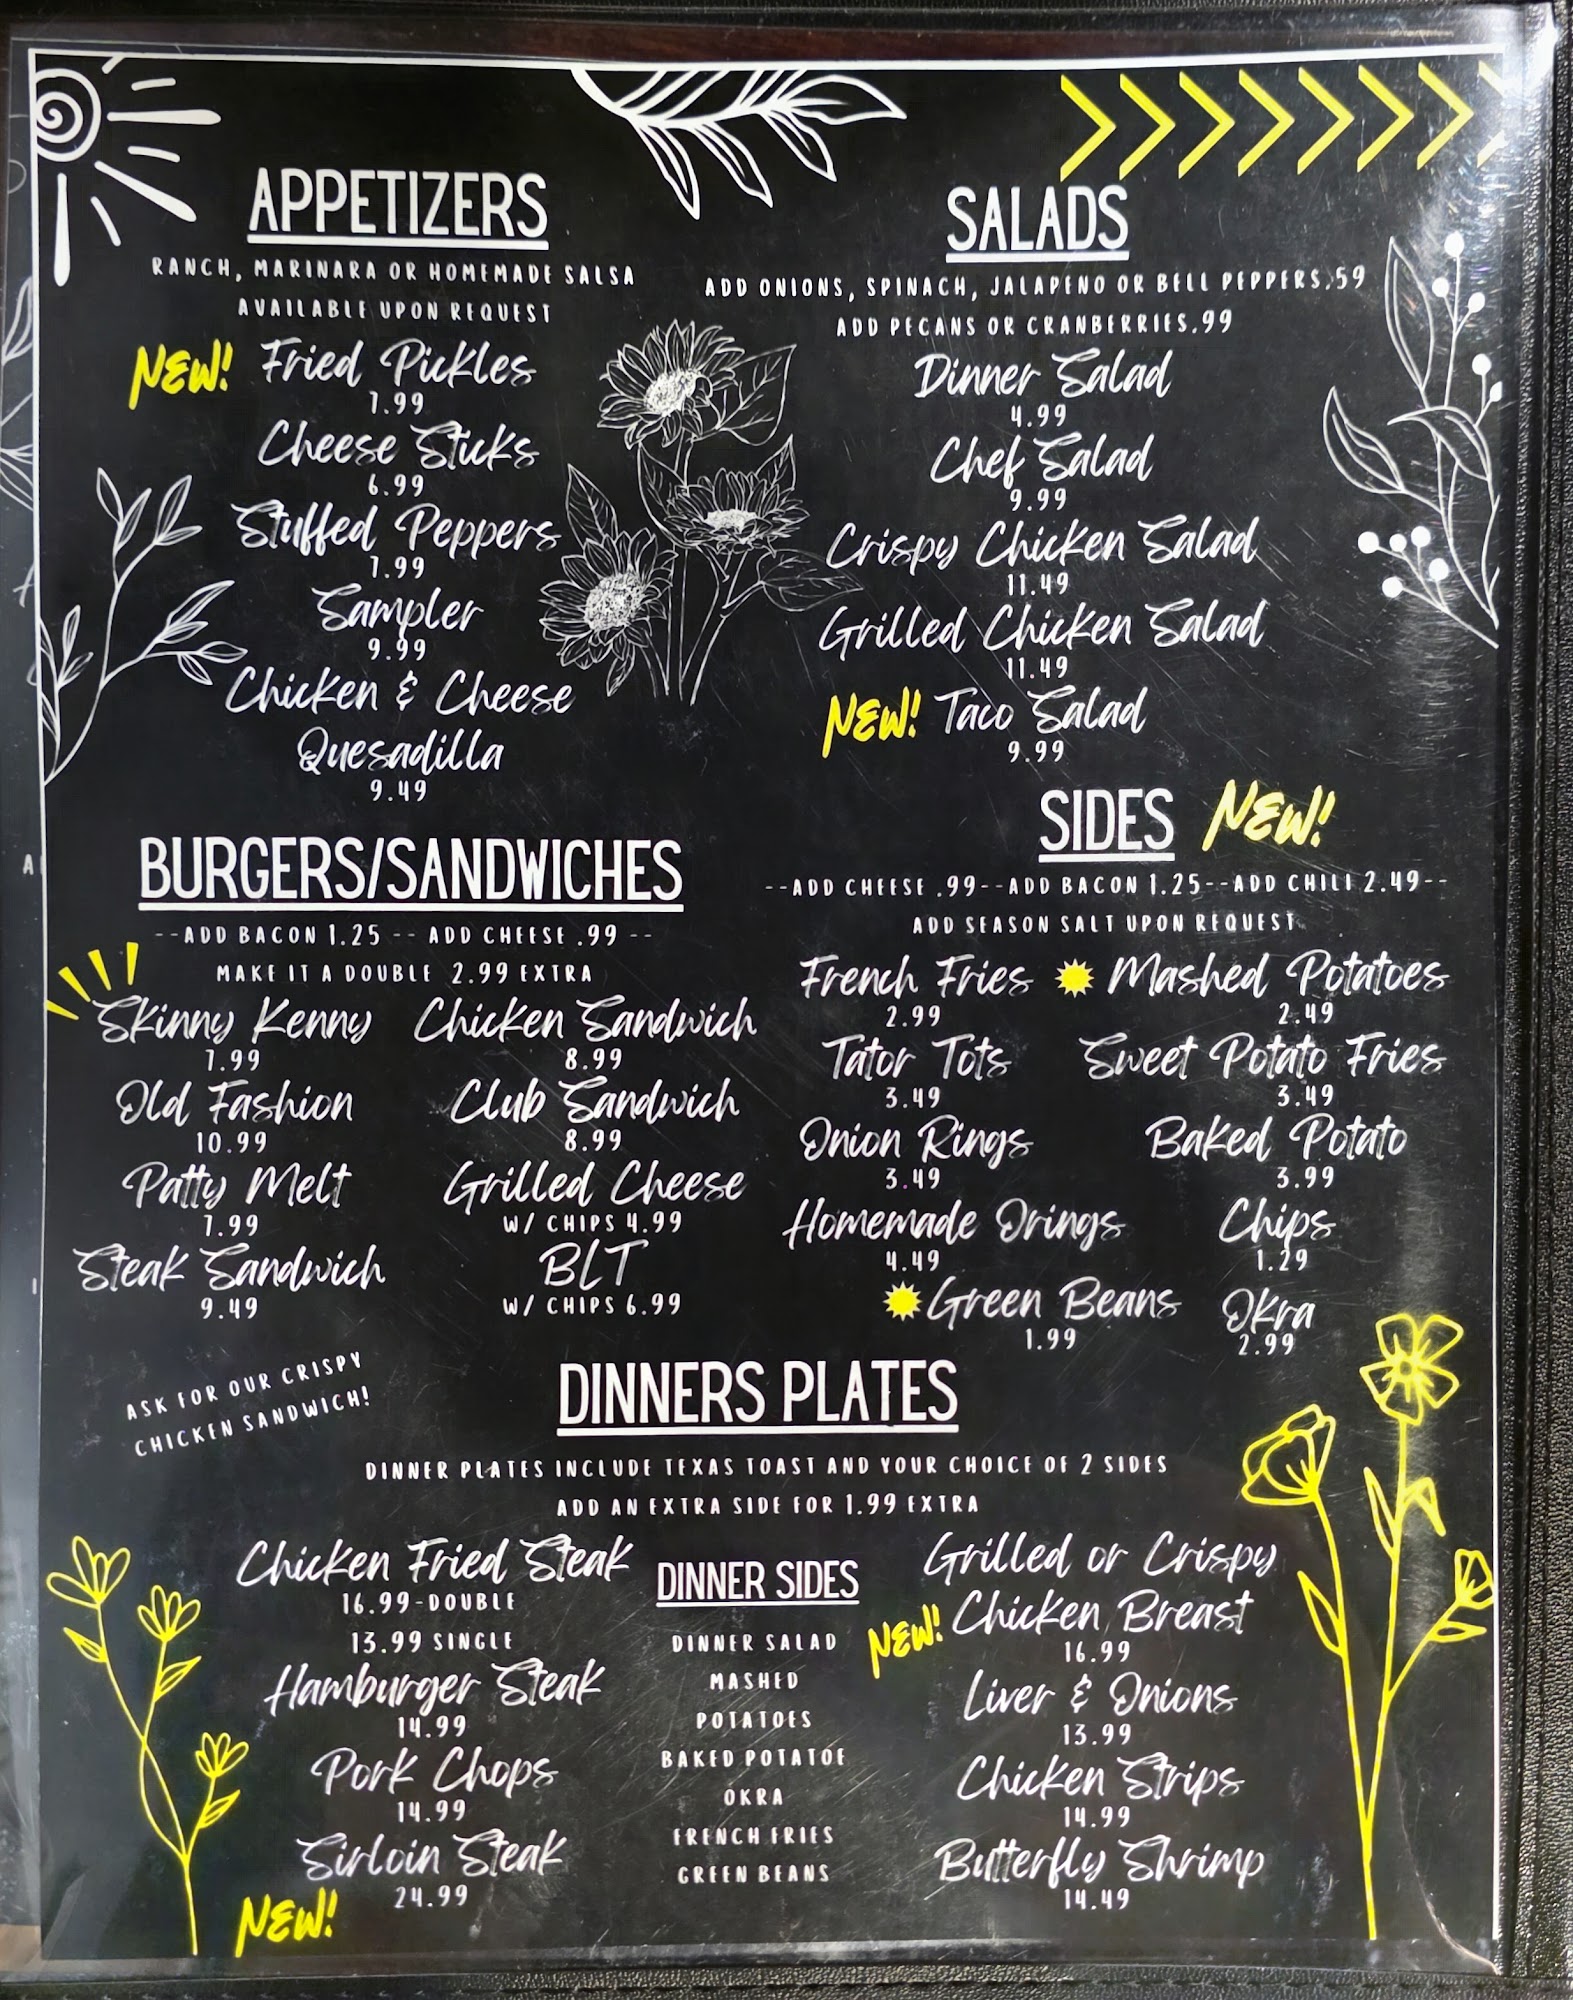 APPETIZERS
RANCH, MARINARA OR HOMEMADE SALSA
AVAILABLE UPON REQUEST
NEW! Fried Pickles
7.99
Cheese Sticks
6.99
Stuffed Peppers
7.99
Sampler
9.99
Chicken & Cheese
Quesadilla
9.49
SALADS
ADD ONIONS, SPINACH, JALAPENO OR BELL PEPPERS.59
ADD PECANS OR CRANBERRIES.99
Dinner Salad
4.99
Chef Salad
9.99
Crispy Chicken Salad
11.49
Grilled Chicken Salad
11.49
NEW! Taco Salad
9.99
BURGERS/SANDWICHES
--ADD BACON 1.25 -- ADD CHEESE .99 --
MAKE IT A DOUBLE 2.99 EXTRA
Skinny Kenny
7.99
Old Fashion
10.99
Patty Melt
7.99
Steak Sandwich
9.49
Chicken Sandwich
8.99
Club Sandwich
8.99
Grilled Cheese
W/ CHIPS 4.99
BLT
W/ CHIPS 6.99
ASK FOR OUR CRISPY
CHICKEN SANDWICH!
SIDES NEW!
--ADD CHEESE .99--ADD BACON 1.25--ADD CHILI 2.49--
ADD SEASON SALT UPON REQUEST
French Fries
2.99
Tator Tots
3.49
Onion Rings
3.49
Homemade Orings
4.49
Green Beans
1.99
Mashed Potatoes
2.49
Sweet Potato Fries
3.49
Baked Potato
3.99
Chips
1.29
Okra
2.99
DINNERS PLATES
DINNER PLATES INCLUDE TEXAS TOAST AND YOUR CHOICE OF 2 SIDES
ADD AN EXTRA SIDE FOR 1.99 EXTRA
Chicken Fried Steak
16.99-DOUBLE
13.99 SINGLE
Hamburger Steak
14.99
Pork Chops
14.99
Sirloin Steak
24.99
NEW!
DINNER SIDES
DINNER SALAD
MASHED
POTATOES
BAKED POTATOE
OKRA
FRENCH FRIES
GREEN BEANS
Grilled or Crispy
NEW! Chicken Breast
16.99
Liver & Onions
13.99
Chicken Strips
14.99
Butterfly Shrimp
14.49